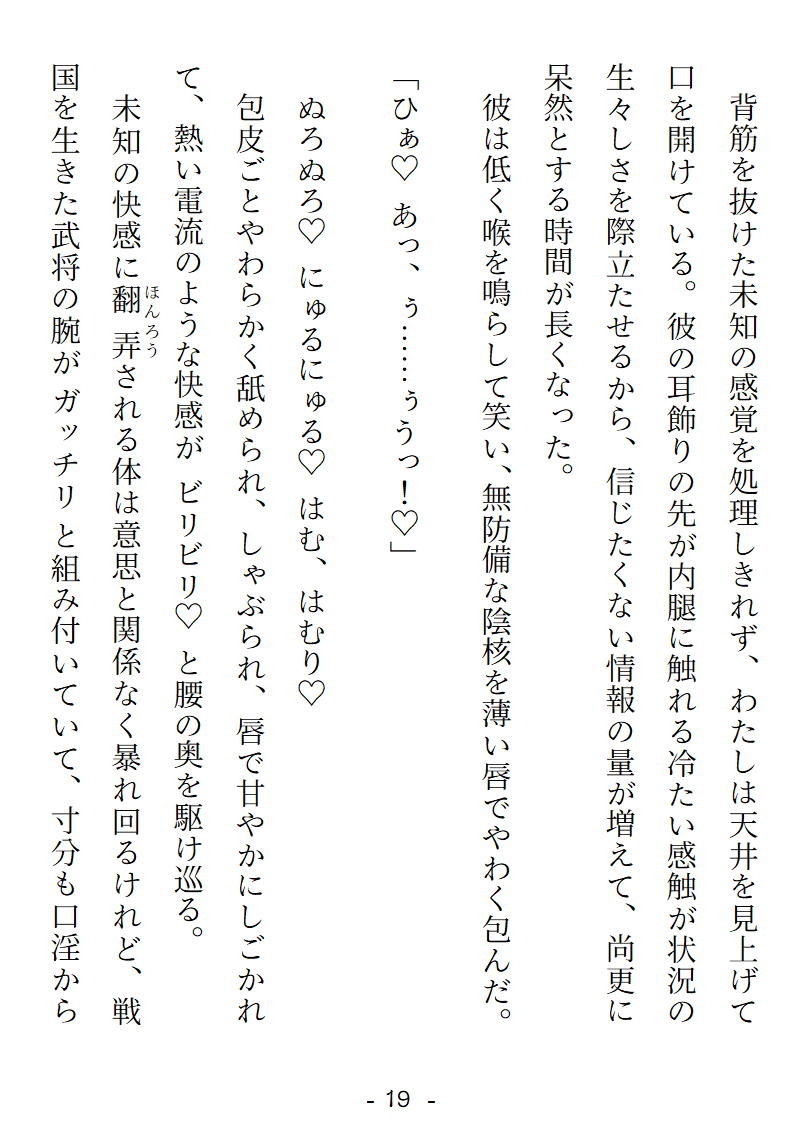 背筋を抜けた未知の感覚を処理しきれず、わたしは天井を見上げて
口を開けている。彼の耳飾りの先が内腿に触れる冷たい感触が状況の
生々しさを際立たせるから、信じたくない情報の量が増えて、尚更に
呆然とする時間が長くなった。
彼は低く喉を鳴らして笑い、無防備な陰核を薄い唇でやわく包んだ。
「ひぁ♡ あっ、ぅ……ぅうっ！♡」
ぬろぬろ♡ にゅるにゅる♡ はむ、はむり♡
包皮ごとやわらかく舐められ、しゃぶられ、唇で甘やかにしごかれ
て、熱い電流のような快感が ビリビリ♡ と腰の奥を駆け巡る。
未知の快感に翻弄される体は意思と関係なく暴れ回るけれど、戦
ほんろう
国を生きた武将の腕が ガッチリ と組み付いていて、寸分も口淫から
- 19 -